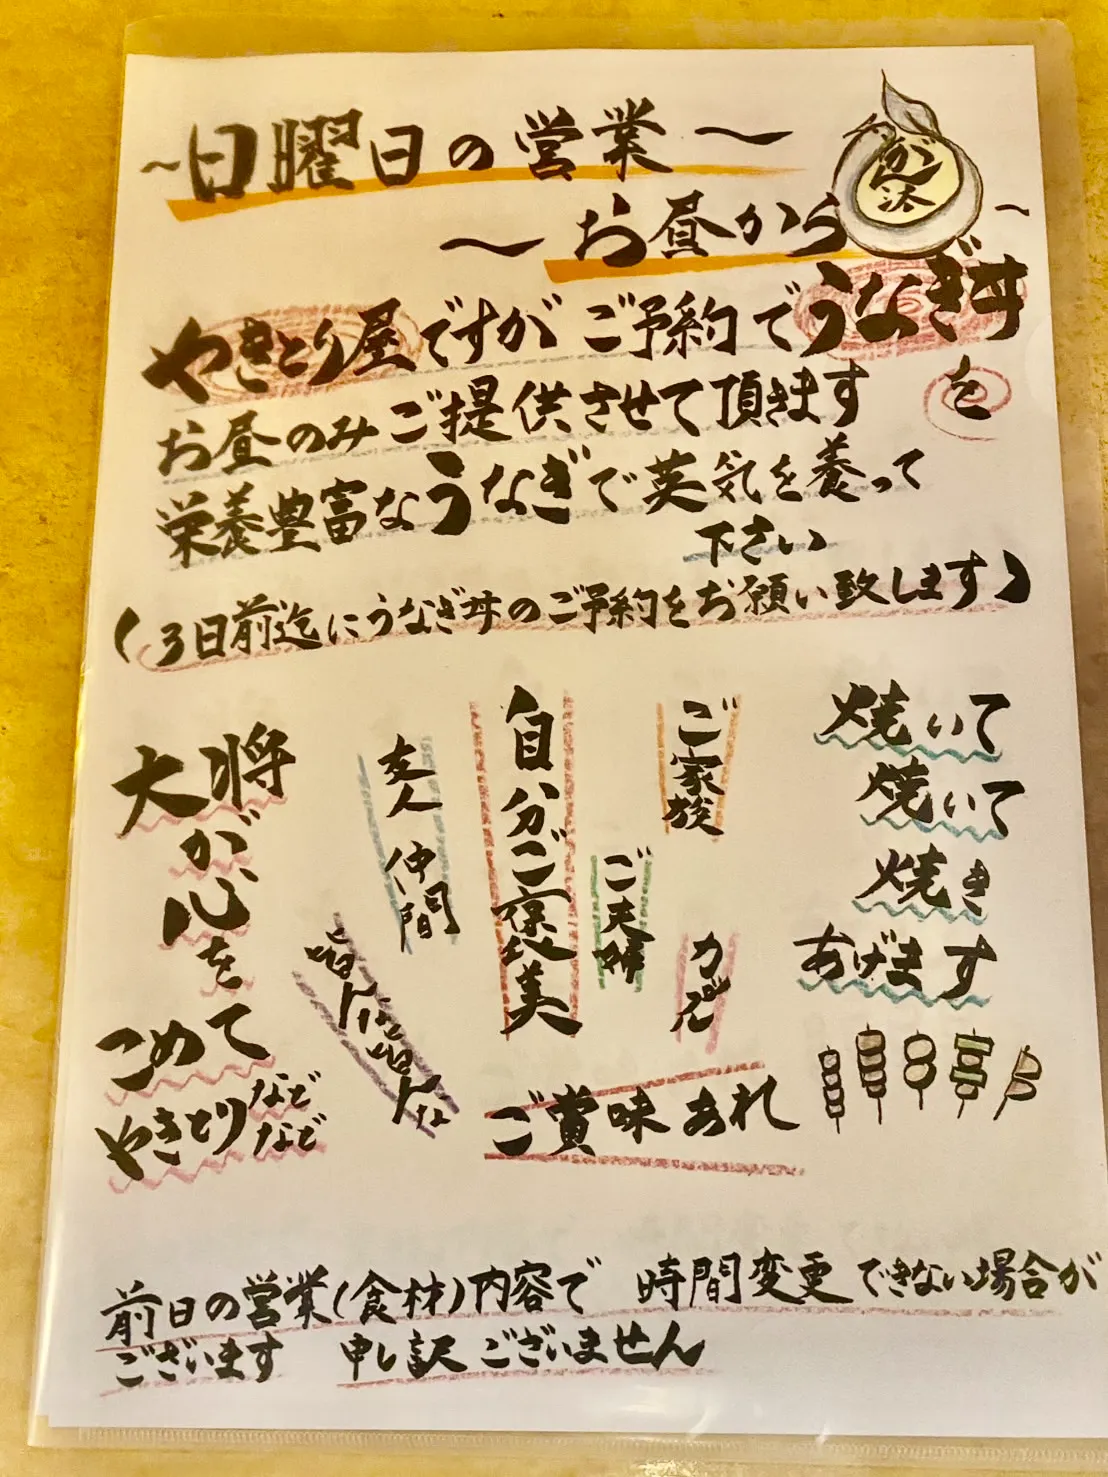 ～日曜日の営業～
～お昼から～
やきとり屋ですが ご予約でうなぎ丼を
お昼のみご提供させて頂きます
栄養豊富なうなぎで英気を養って
下さい
(3日前迄にうなぎ丼のご予約をお願い致します)
焼いて
焼いて
焼き
あげます
ご家族
カップル
ご夫婦
自分ご褒美
友人 仲間
ご賞味あれ
大将
が
心を
こめて
やきとりなど
など
前日の営業(食材)内容で 時間変更できない場合が
ございます 申し訳ございません